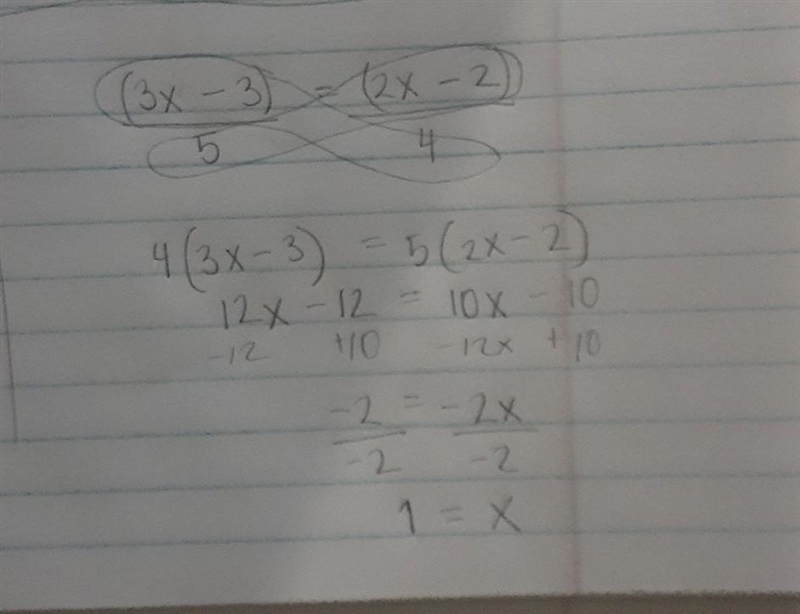 (3x - 3) = (2x - 2)
5 4
4(3x - 3) = 5(2x - 2)
12x - 12 = 10x - 10
-12 +10 -12x +10
-2 = -2x
-2 -2
1 = x